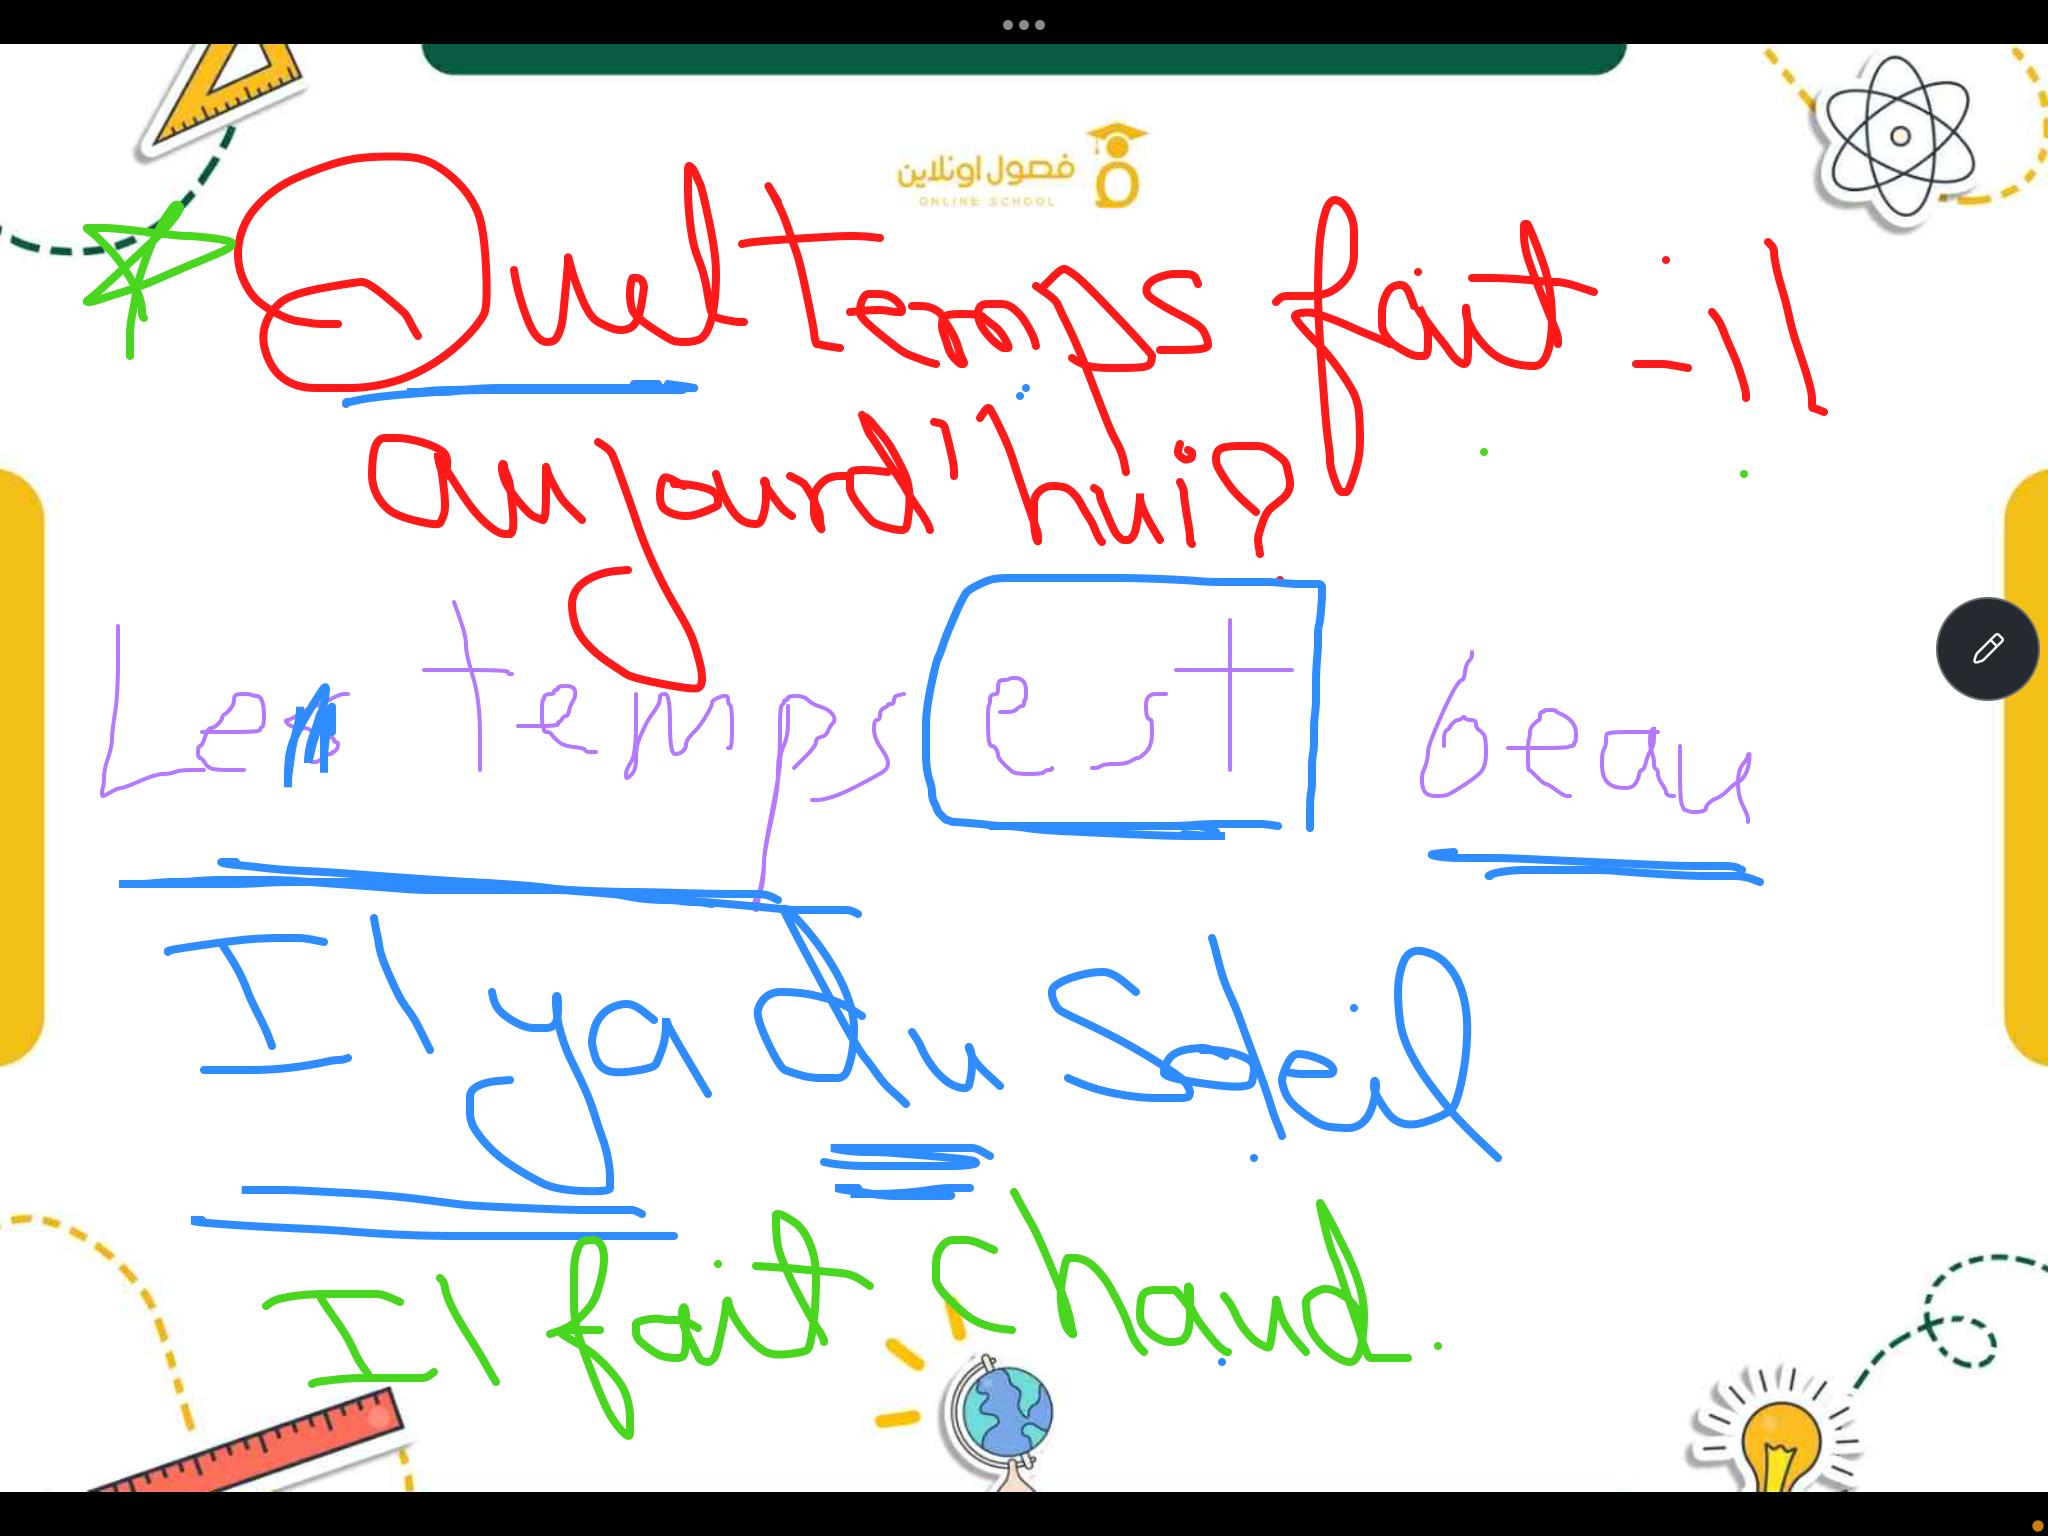 فصول اونلاين
ONLINE SCHOOL
Quel temps fait-il
aujourd'hui?
Le temps est beau
Il y a du Soleil
Il fait chaud.